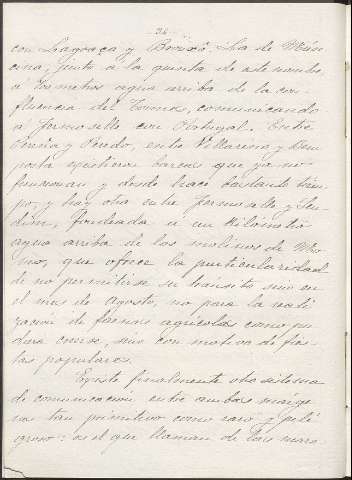 34
con Lagoaça y Bruxó. La de Mán
cina, junto á la quinta de este nombre
á 100 metros agua arriba de la con
fluencia del Tormes, comunicando
á Fermoselle con Portugal. Entre
y Peredo, entre Villarino y Bem
posta existieron barcas que ya no
funcionan y desde hace bastante tiem
po; y hay otra entre Fermoselle y Sen
din, fondeada a un kilómetro
agua arriba de los molinos de
que ofrece la particularidad
de no permitirse su tránsito sino en
el mes de Agosto, no para la reali
zación de faenas agrícolas como pu
diera creerse, sino con motivo de fies
tas populares.
Existe finalmente otro sistema
de comunicacion entre ambas márge
nes tan primitivo como raro y peli
groso: es el que llaman de las maro